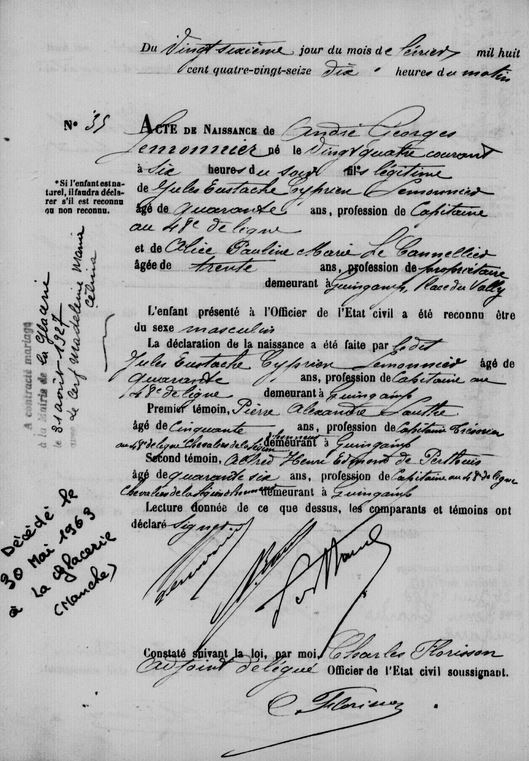 Du Vingt sixième jour du mois de février mil huit
cent quatre-vingt-seize dix heures du matin
N° 35
ACTE DE NAISSANCE de André Georges
Lemonnier né le Vingt quatre courant
à Six heures du soir fils légitime
*Si l'enfant est na-
turel, il faudra décla-
rer s'il est reconnu
ou non reconnu.
de Jules Eustache Cyprien Lemonnier
âgé de quarante ans, profession de Capitaine
au 48e de ligne
et de Célice Pauline Marie Le Cannellier
âgée de trente ans, profession de propriétaire
demeurant à Guingamp, Place du Vally
L'enfant présenté à l'Officier de l'Etat civil a été reconnu être
du sexe masculin
La déclaration de la naissance a été faite par le dit
Jules Eustache Cyprien Lemonnier âgé de
quarante ans, profession de Capitaine au
48e de ligne demeurant à Guingamp
Premier témoin, Pierre Alexandre
âgé de Cinquante ans, profession de Capitaine Trésorier
au 48e de ligne Chevalier de la Légion d'honneur demeurant à Guingamp
Second témoin, Alfred Henri Edmond de Perthuis
âgé de quarante six ans, profession de Capitaine au 48e de ligne
Chevalier de la Légion d'honneur demeurant à Guingamp
Lecture donnée de ce que dessus, les comparants et témoins ont
déclaré signer.
Constaté suivant la loi, par moi, Charles Florisson
adjoint délégué Officier de l'Etat civil soussignant.
C. Florisson
A contracté mariage
à la Mairie de La Glacerie
le 31 août 1927
avec Le Cerf Madeleine Maria
Célina
Décédé le
30 Mai 1963
à La Glacerie
(Manche)